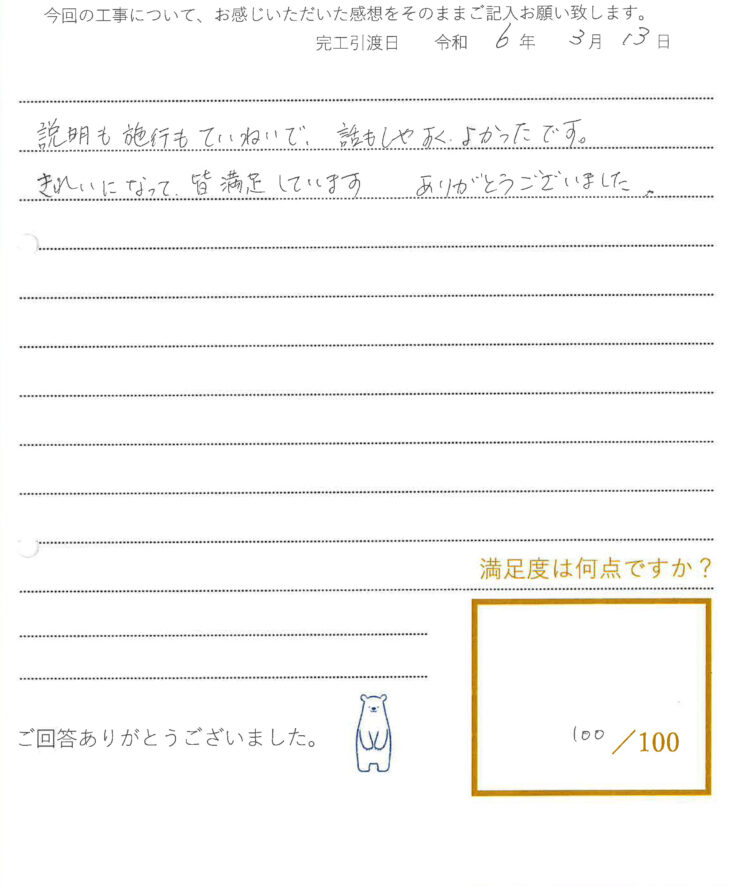 今回の工事について、お感じいただいた感想をそのままご記入お願い致します。
完工引渡日 令和 6 年 3 月 13 日
説明も施行もていねいで、話もしやすく、よかったです。
きれいになって、皆満足しています ありがとうございました。
満足度は何点ですか？
100 /100
ご回答ありがとうございました。